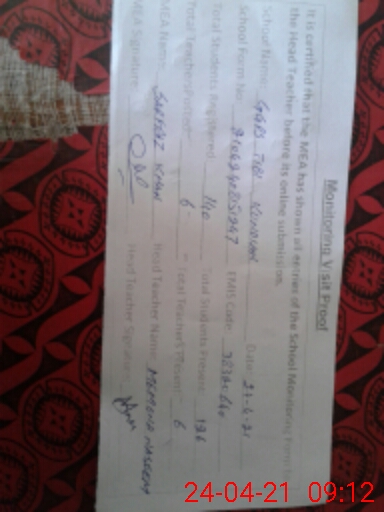 Monitoring Visit Proof
It is certified that the MEA has shown all entries of the School Monitoring Form to
the Head Teacher before its online submission.
School Name: GGPS Date: 24-4-21
School Form No: EMIS Code:
Total Students Registered: 140 Total Students Present: 126
Total Teachers Posted: 6 Total Teachers Present: 6
MEA Name: SARFRAZ KHAN Head Teacher Name: MEMOONA NASREEN
MEA Signature: Head Teacher Signature:
24-04-21 09:12